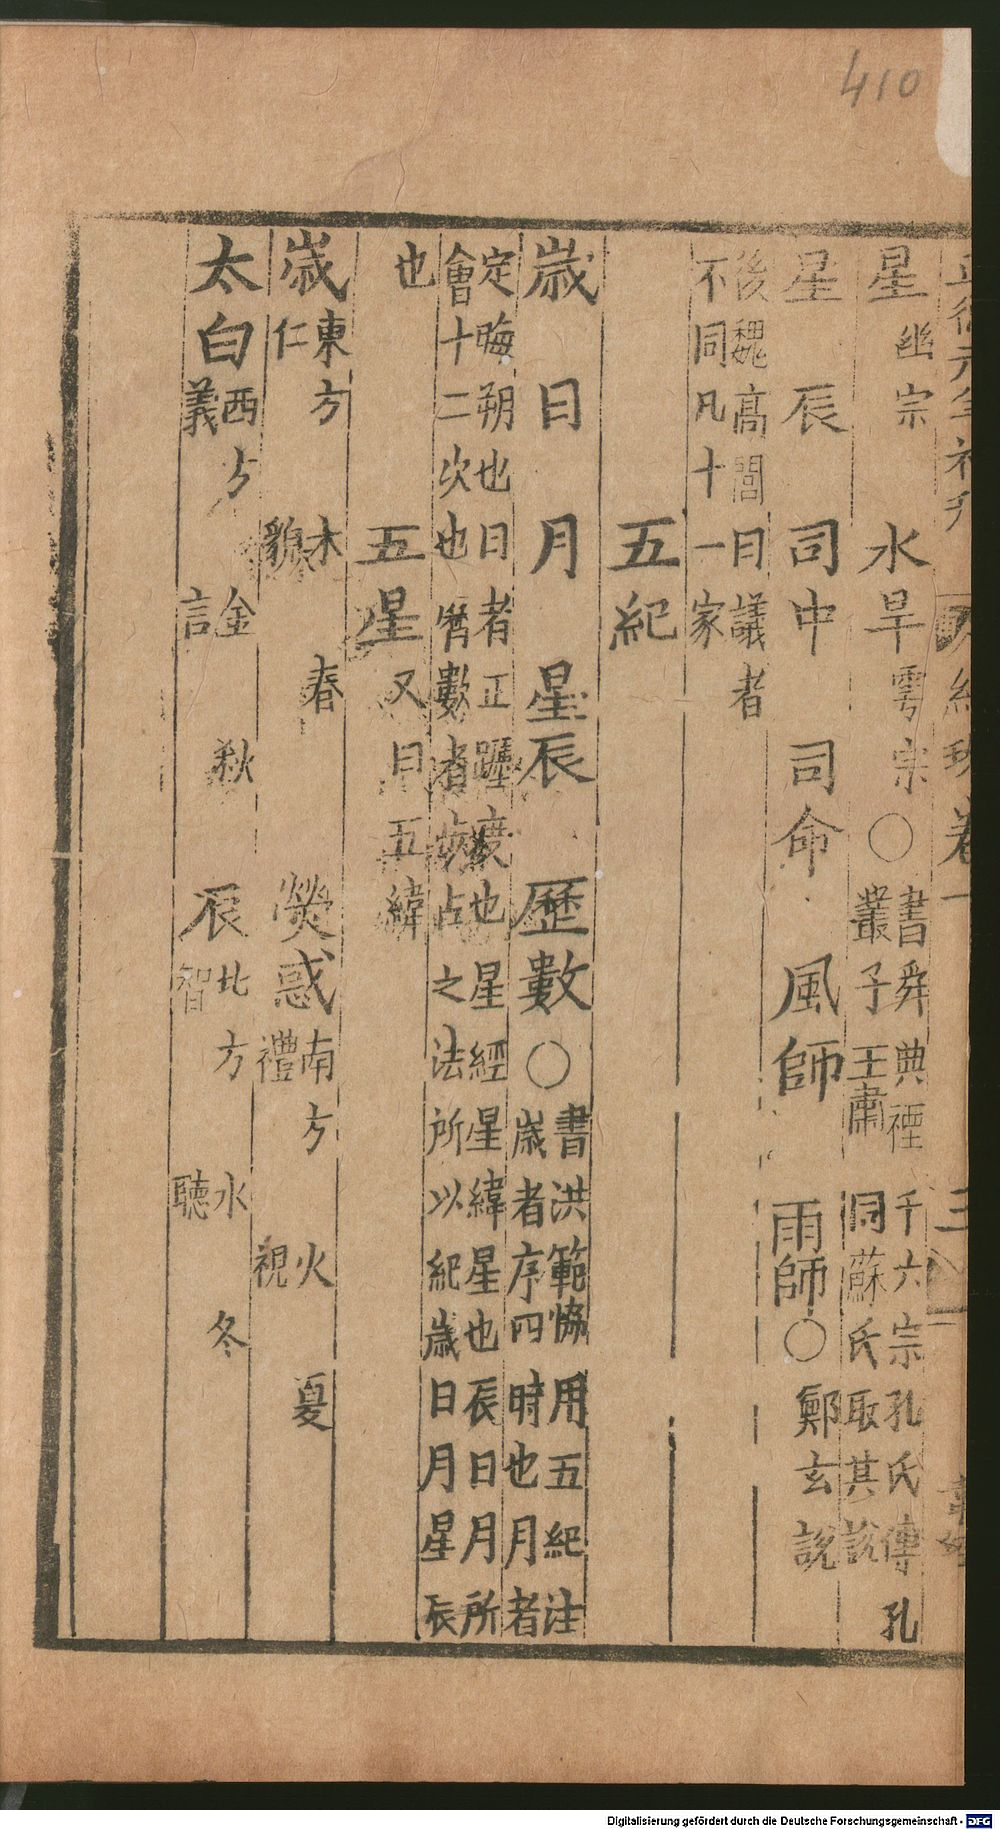 410
星 幽宗 水旱 雩宗 ○ 書舜典禋于六宗孔氏傳孔
叢子王肅同蘇氏取其說
星 辰 司中 司命 風師 雨師 ○ 鄭玄説
後魏高閭曰議者
不同凡十一家
五紀
歲 日 月 星辰 歷數 ○ 書洪範恊用五紀注
歲者序四時也月者
定晦朔也日者正躔度也星經星緯星也辰日月所
會十二次也曆數者步占之法所以紀歲日月星辰
也 五星 又曰五緯
歲 東方 木 春
仁 貌
熒惑 南方 火 夏
禮 視
太白 西方 金 秋
義 言
辰 北方 水 冬
智 聽
Digitalisierung gefördert durch die Deutsche Forschungsgemeinschaft - DFG